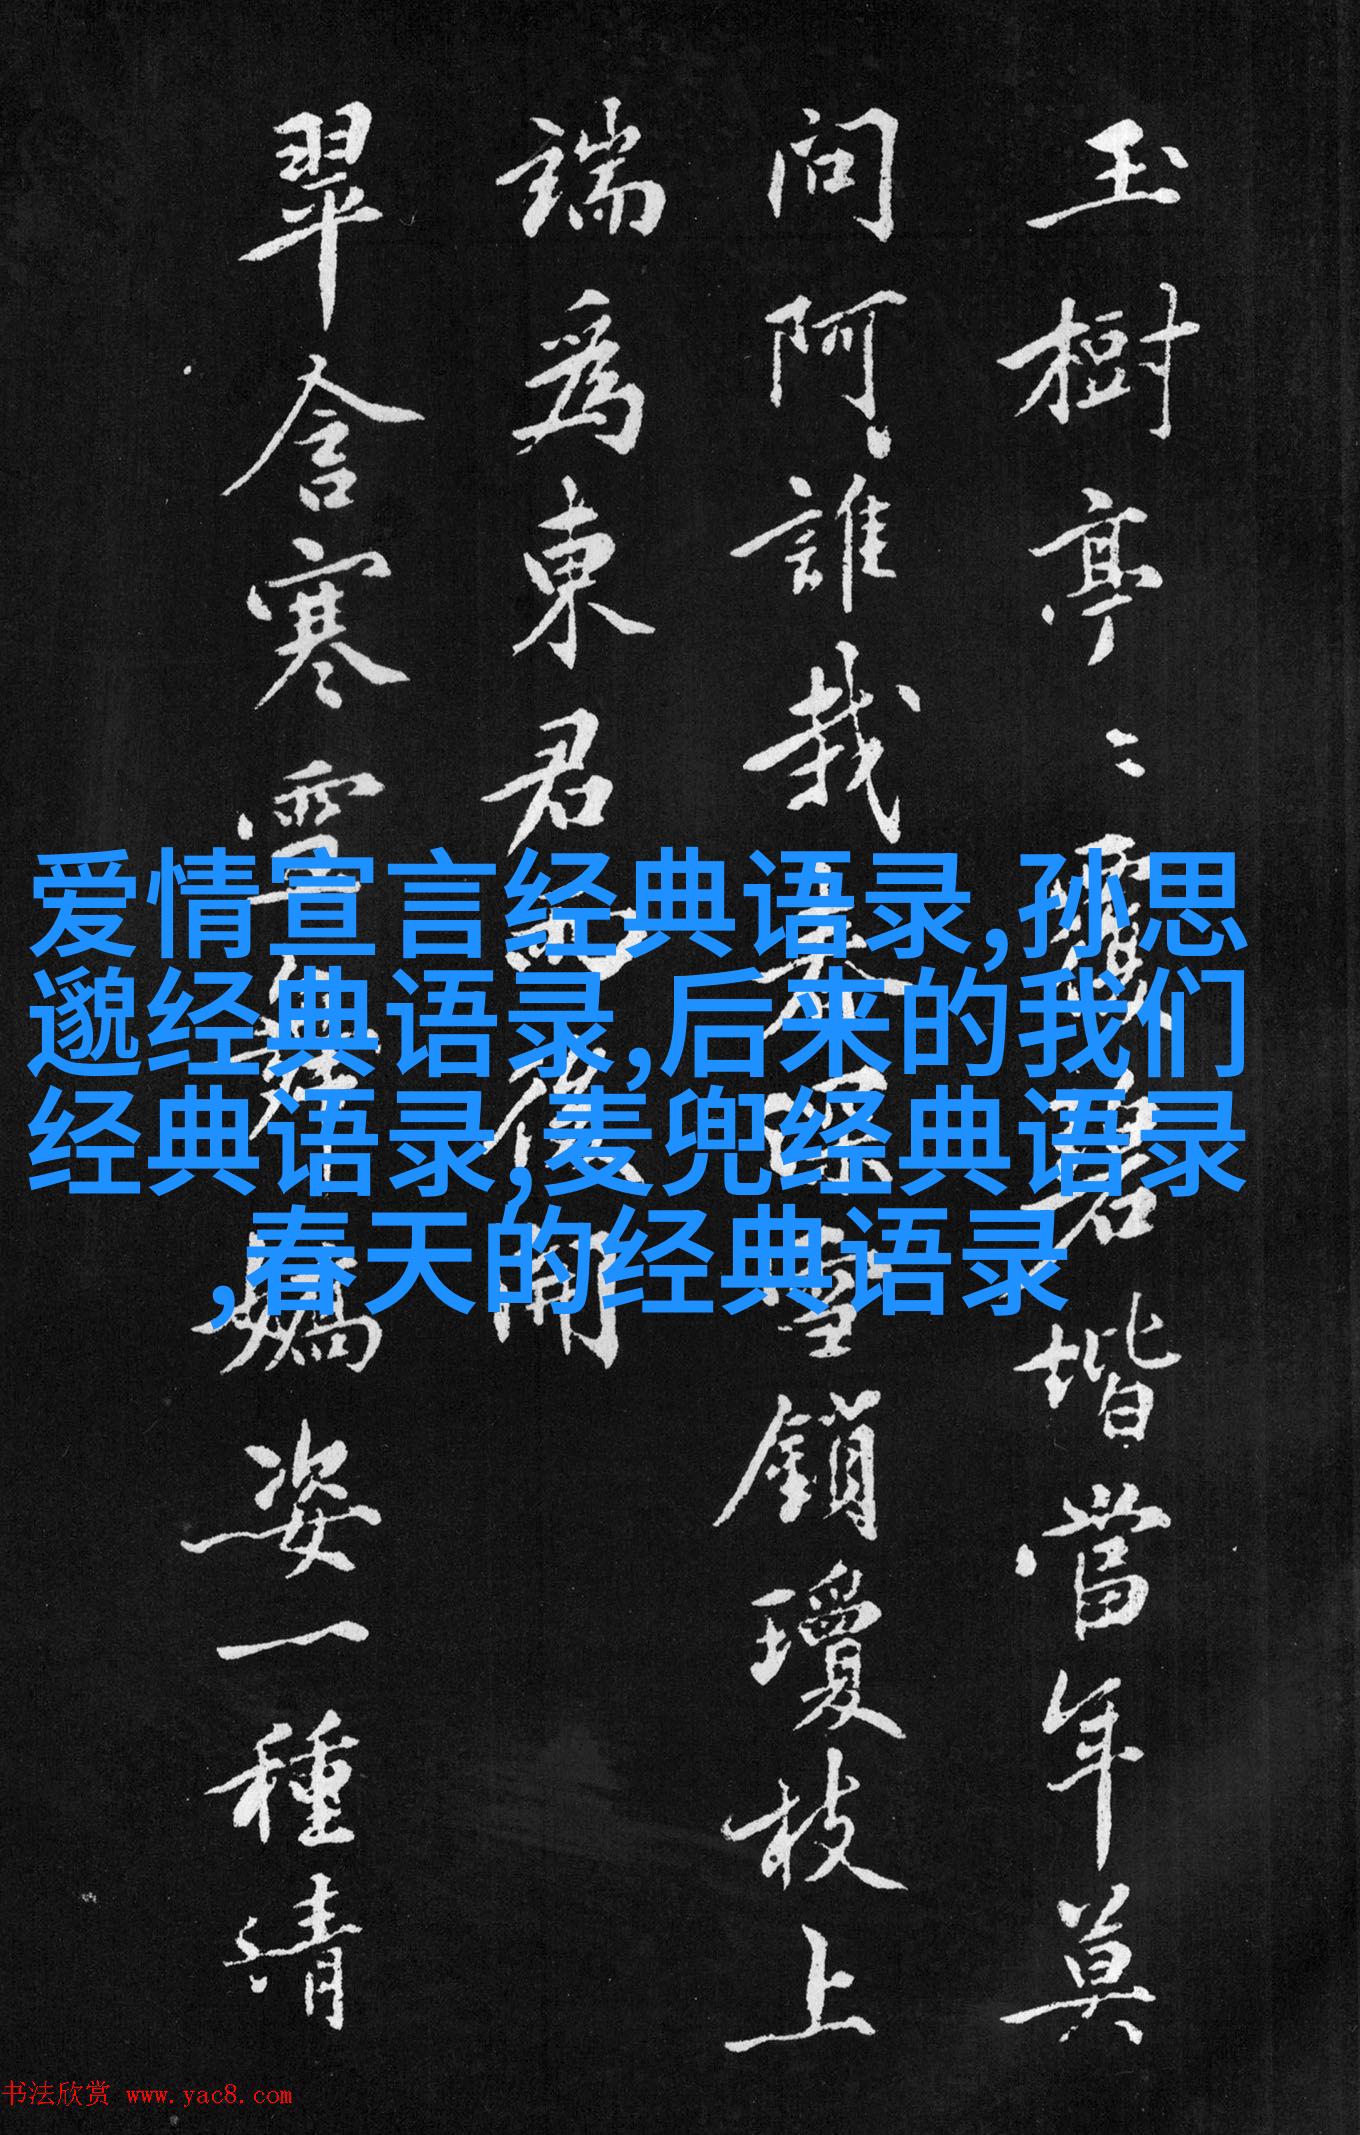 玉樹亭：覆碧堦當年莫
問阿誰栽夜深雪鎖瓊枝上
端爲東君開
翠含寒雪舞嬌姿一種清
爱情宣言经典语录,孙思
邈经典语录,后来的我们
经典语录,麦兜经典语录
,春天的经典语录
书法欣赏 www.yac8.com